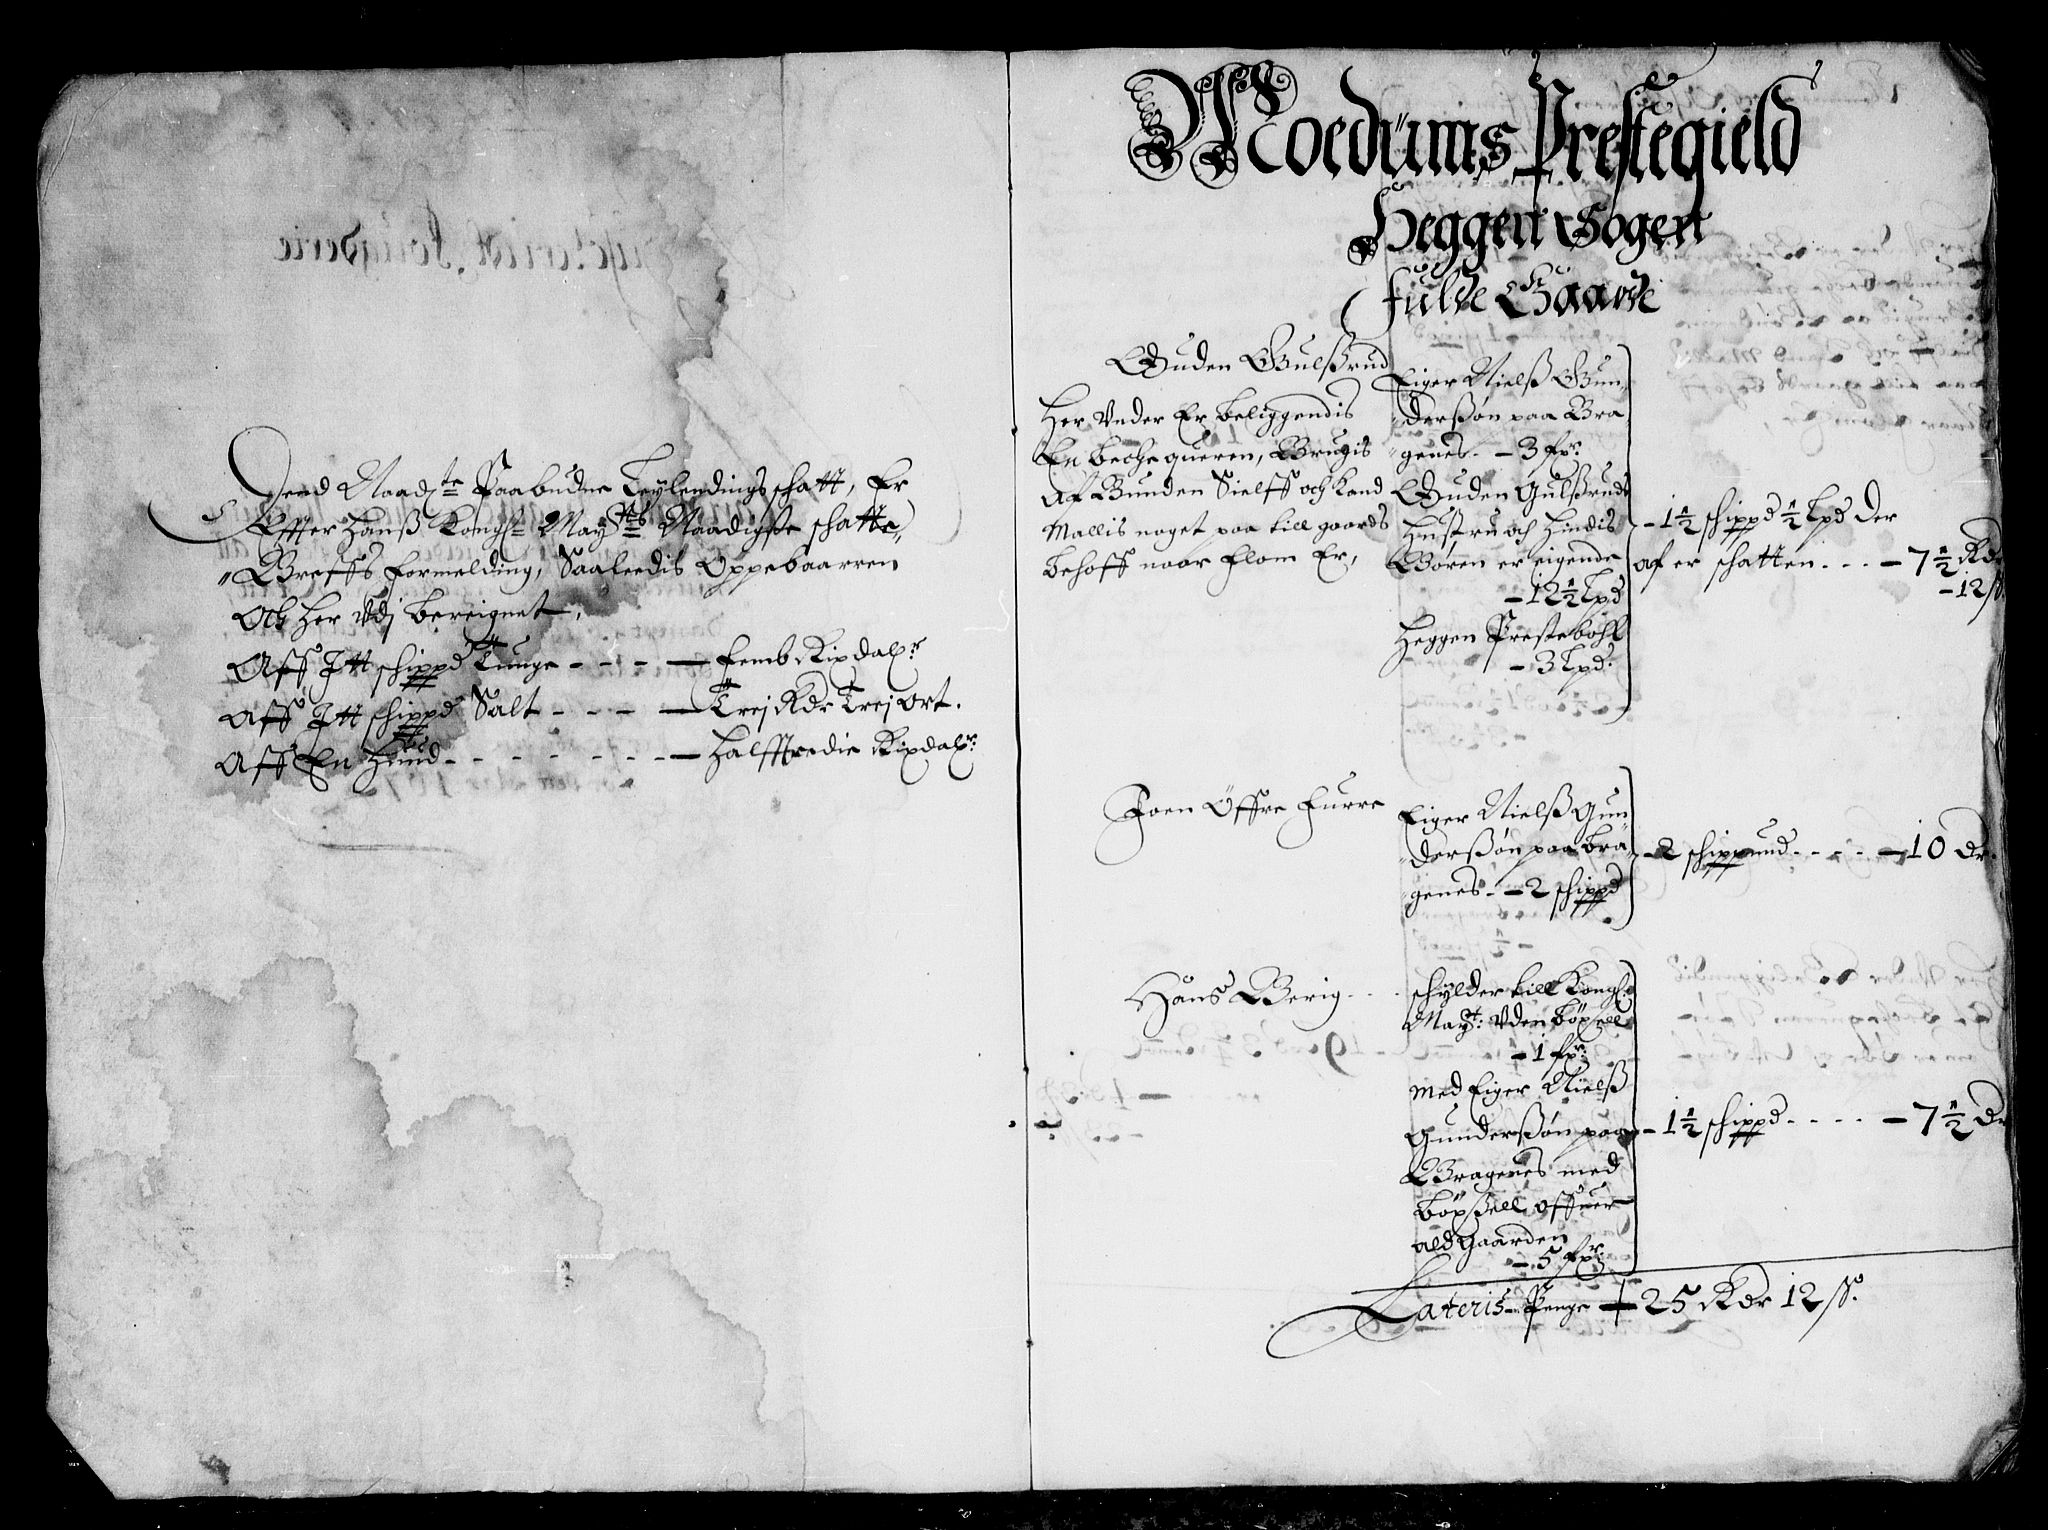 Dend Naadte Paabudne Leylendings schatt, Er
Effter Hanß Kongl: Maytts Naadigste schatte
Breffs formelding, Saaleedis Oppebaarren
Och her Vdj bereignet,
Aff Jtt schippd Tunge - - - - Femb Rixdalr
Aff Jtt schippd Salt - - - - Trej Rdr Trej ort.
Aff En Hud - - - - - - - - Halfftredie Rixdalr
Moedums Prestegield
Heggen Sogen
Fulde Gaarde
Guden Gulßrud
Her Vnder Er beliggendis
En bechequeren, Brugis
Af Bunden Sielff och Kand
Mallis noget paa till gaards
behoff naar flom Er,
Eiger Nielß Gun-
derßøn paa Bra
genes. - 3 fr.
Guden Gulßruds
Hustru och Hindis
Børen er eigende
- 12½ Lpd
Heggen Prestebohl
- 3 Lpd.
- 1½ schippd ½ Lpd Der
af er schatten. . . - 7½ Rdr
- 12 ß.
Joen Öffre Furre
Eiger Nielß Gun-
derßøn paa Bra-
genes. - 2 schippd
- 2 schippund. - - - - 10 Dr.
Hans Berig. . .
schylder till Kongl:
Mayt: Vden böxell
- 1 fr.
med Eiger Nielß
Gunderßøn paa
Bragenes med
böxßell offuer
ald gaarden
- 5 fr
- 1½ schippd. - - - - 7½ Dr
Lateris Penge - 25 Rdr 12 ß.